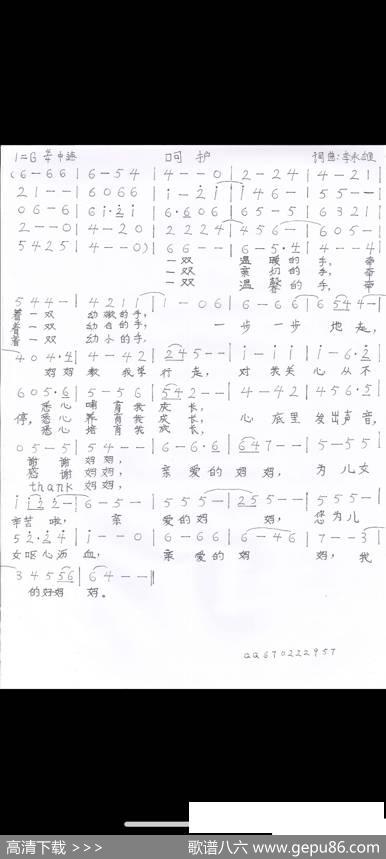 1=G 4/4 中速 呵护 词曲:李永雄
(6-66|6-54|4--0|2-24|4-21|
21--|6066|i-2i|i46-|55--|
06-6|6i·2i|6·606|65-5|6321|
2--0|4-20|2224|456-|605-|
5425|4--0)|66--|6-5·4|4--4|
一双 温暖的手, 牵
一双 亲切的手, 牵
一双 温馨的手, 牵
544-|4211|1-06|6-66|6544-|
着一双 幼嫩的手,
着一双 幼白的手, 一步一步地走,
着一双 幼小的手,
404·4|4-42|245--|i-ii|i-6·2|
妈妈教我学行走, 对我关心从不
605·6|5-56|542--|4-42|456·5|
悉心哺育我成长,
停,悉心养育我成长, 心底里发出声音,
悉心培育我成长,
05-5|54--|6-6·6|647--|5-55|
谢谢妈妈,
感谢妈妈, 亲爱的妈妈, 为儿女
thank妈妈,
ii22-|6-5-|555-|255--|555-|
辛苦啦, 亲爱的妈妈, 您为儿
52·24|i--0|6-66|6-46|7--3|
女呕心沥血, 亲爱的妈妈, 我
34556|64--‖
的好妈妈。
QQ670222957
高清下载 >>> 歌谱八六 www.gepu86.com